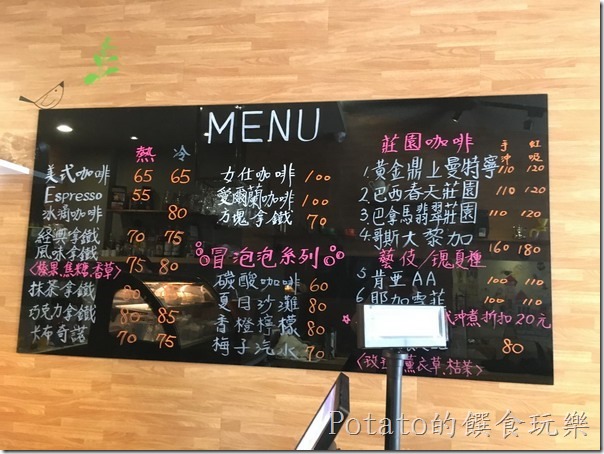 MENU
熱 冷
美式咖啡 65 65
Espresso 55
冰滴咖啡 80
經典拿鐵 70 75
風味拿鐵 75 80
<榛果.焦糖.香草>
抹茶拿鐵 80
巧克力拿鐵 80 85
卡布奇諾 70 75
力仕咖啡 100
愛爾蘭咖啡 100
方塊拿鐵 70
冒泡泡系列
碳酸咖啡 60
夏日沙灘 80
香橙檸檬 80
梅子汽水 70
莊園咖啡 手沖 虹吸
1.黃金鼎上曼特寧 110 120
2.巴西春天莊園 110 120
3.巴拿馬翡翠莊園 110 120
4.哥斯大黎加 160 180
藝伎/瑰夏種
5.肯亞AA 100 110
6.耶加雪菲 100 110
沖煮折扣20元
80
薰衣草.枯茶>
Potato的饌食玩樂